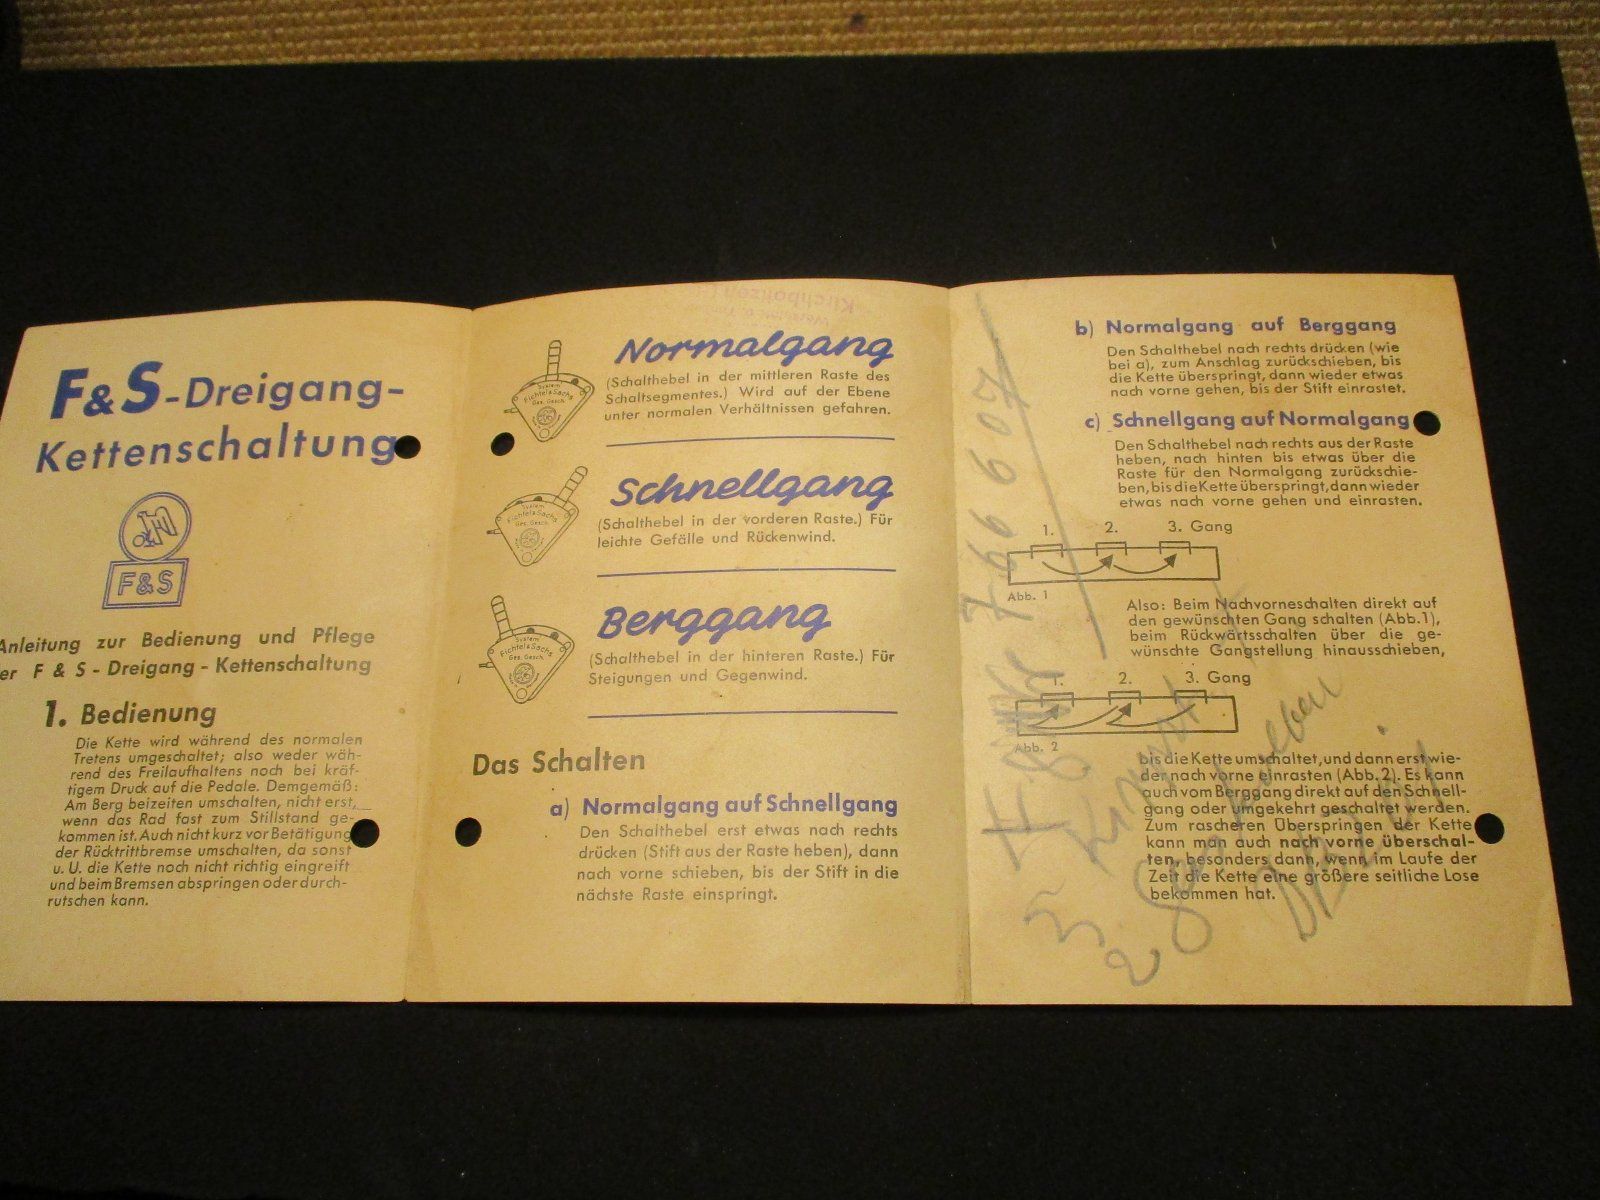 F&S-Dreigang-
Kettenschaltung
F&S
Anleitung zur Bedienung und Pflege
er F & S - Dreigang - Kettenschaltung
1. Bedienung
Die Kette wird während des normalen
Tretens umgeschaltet; also weder wäh-
rend des Freilaufhaltens noch bei kräf-
tigem Druck auf die Pedale. Demgemäß:
Am Berg beizeiten umschalten, nicht erst,
wenn das Rad fast zum Stillstand ge-
kommen ist. Auch nicht kurz vor Betätigung
der Rücktrittbremse umschalten, da sonst
u. U. die Kette noch nicht richtig eingreift
und beim Bremsen abspringen oder durch-
rutschen kann.
Kirchbötzen
Normalgang
(Schalthebel in der mittleren Raste des
Schaltsegmentes.) Wird auf der Ebene
unter normalen Verhältnissen gefahren.
System
Fichtel & Sachs
Ges. Gesch.
Schnellgang
(Schalthebel in der vorderen Raste.) Für
leichte Gefälle und Rückenwind.
System
Fichtel & Sachs
Ges. Gesch.
Berggang
(Schalthebel in der hinteren Raste.) Für
Steigungen und Gegenwind.
System
Fichtel & Sachs
Ges. Gesch.
Das Schalten
a) Normalgang auf Schnellgang
Den Schalthebel erst etwas nach rechts
drücken (Stift aus der Raste heben), dann
nach vorne schieben, bis der Stift in die
nächste Raste einspringt.
b) Normalgang auf Berggang
Den Schalthebel nach rechts drücken (wie
bei a), zum Anschlag zurückschieben, bis
die Kette überspringt, dann wieder etwas
nach vorne gehen, bis der Stift einrastet.
c) Schnellgang auf Normalgang
Den Schalthebel nach rechts aus der Raste
heben, nach hinten bis etwas über die
Raste für den Normalgang zurückschie-
ben, bis die Kette überspringt, dann wieder
etwas nach vorne gehen und einrasten.
1. 2. 3. Gang
Abb. 1
Also: Beim Nachvorneschalten direkt auf
den gewünschten Gang schalten (Abb.1),
beim Rückwärtsschalten über die ge-
wünschte Gangstellung hinausschieben,
1. 2. 3. Gang
Abb. 2
bis die Kette umschaltet, und dann erst wie-
der nach vorne einrasten (Abb. 2). Es kann
auch vom Berggang direkt auf den Schnell-
gang oder umgekehrt geschaltet werden.
Zum rascheren Überspringen der Kette
kann man auch nach vorne überschal-
ten, besonders dann, wenn im Laufe der
Zeit die Kette eine größere seitliche Lose
bekommen hat.
766 607